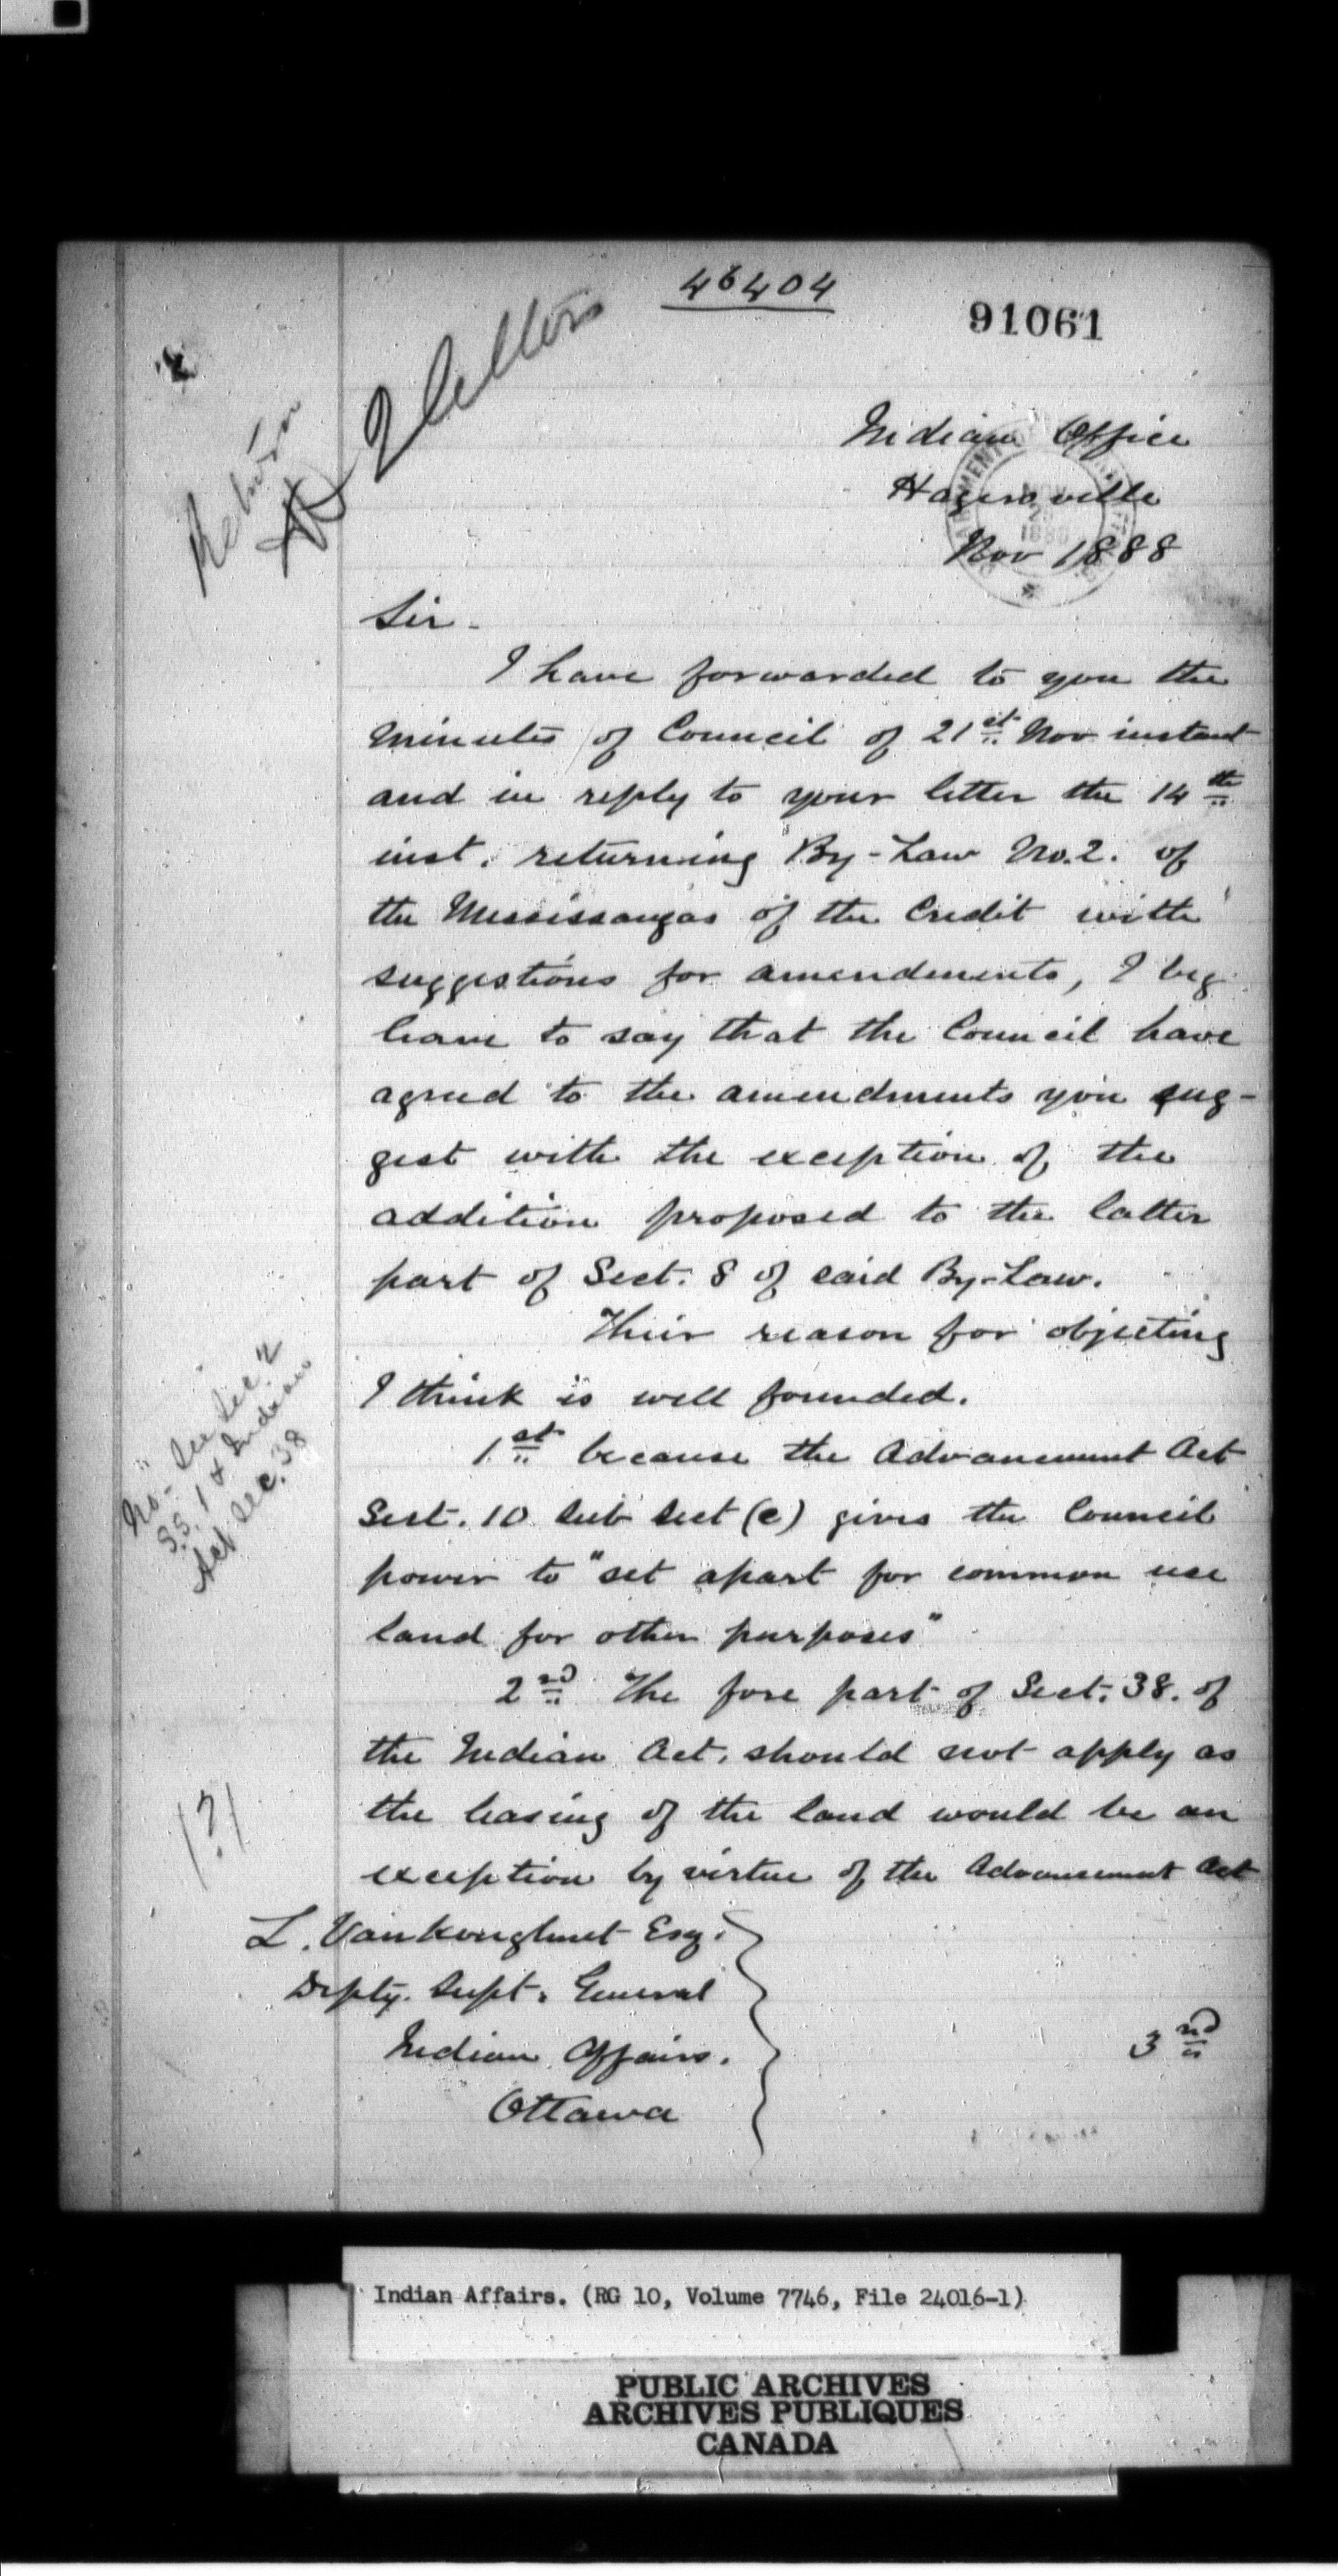 46404
91061
2 letters
Return
Indian Office
Hagersville
Nov 1888
Sir -
I have forwarded to you the
minutes of Council of 21st Nov instant
and in reply to your letter the 14th
inst. returning By-Law No. 2. of
the Mississaugas of the Credit with
suggestions for amendments, I beg
leave to say that the Council have
agreed to the amendments you sug-
gest with the exception of the
addition proposed to the latter
part of Sect. 8 of said By-Law.
Their reason for objecting
I think is well founded.
1st because the Advancement Act
Sect. 10 Sub Sect (e) gives the Council
power to "set apart for common use
land for other purposes"
No - See Sec 2
S.S. 1 & Indian
Act Sec. 38
2nd The fore part of Sect. 38. of
the Indian Act. should not apply as
the leasing of the land would be an
exception by virtue of the Advancement Act
(?)
L. Vankoughnet Esq.
Depty. Supt. General
Indian Affairs.
Ottawa
3nd
Indian Affairs. (RG 10, Volume 7746, File 24016-1)
PUBLIC ARCHIVES
ARCHIVES PUBLIQUES
CANADA